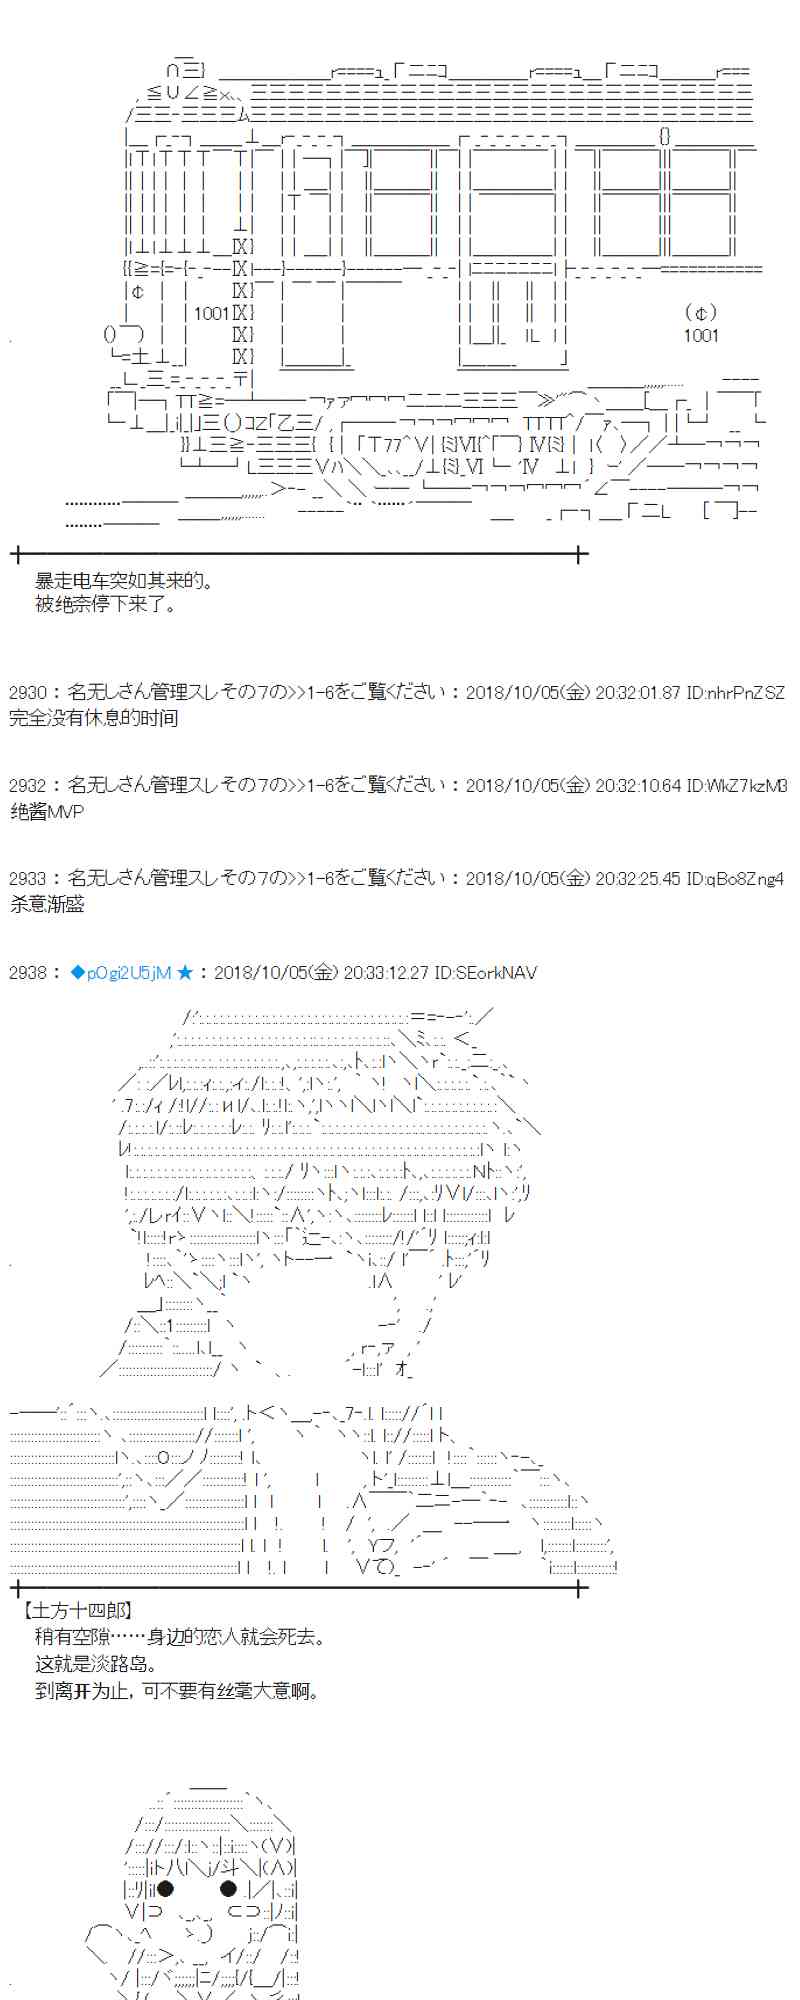 1001
1001
暴走电车突如其来的。
被绝奈停下来了。
2930 : 名无しさん管理スレその7の>>1-6をご覧ください : 2018/10/05(金) 20:32:01.87 ID:nhrPnZSZ
完全没有休息的时间
2932 : 名无しさん管理スレその7の>>1-6をご覧ください : 2018/10/05(金) 20:32:10.64 ID:WkZ7kzM3
绝酱MVP
2933 : 名无しさん管理スレその7の>>1-6をご覧ください : 2018/10/05(金) 20:32:25.45 ID:qBo8Zng4
杀意渐盛
2938 : ◆pOgi2U5jM ★ : 2018/10/05(金) 20:33:12.27 ID:SEorkNAV
【土方十四郎】
稍有空隙……身边的恋人就会死去。
这就是淡路岛。
到离开为止，可不要有丝毫大意啊。